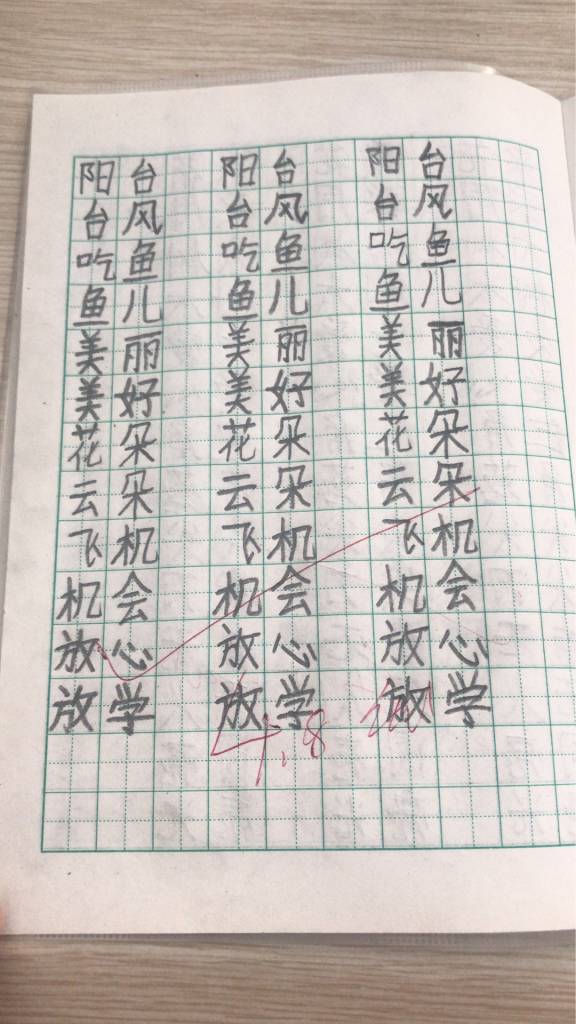 阳台 阳台 阳台
台风 台风 台风
吃鱼 吃鱼 吃鱼
鱼儿 鱼儿 鱼儿
美丽 美丽 美丽
美好 美好 美好
花朵 花朵 花朵
云朵 云朵 云朵
飞机 飞机 飞机
机会 机会 机会
放心 放心 放心
放学 放学 放学
4.8